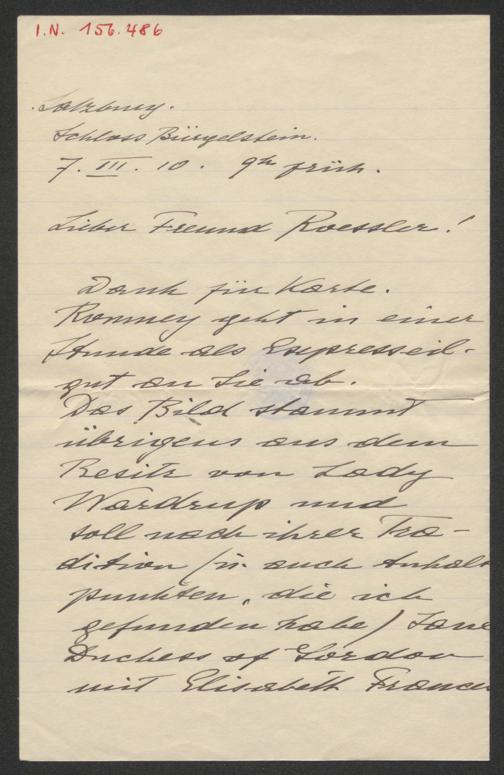 I.N. 156.486
Salzburg.
Schloss Bürgelstein.
7. III. 10. 9h früh.
Lieber Freund Roessler!
Dank für Karte.
Romney geht in einer
Stunde als Expresseil-
gut an Sie ab.
Das Bild stammt
übrigens aus dem
Besitz von Lady
Wardrup und
soll nach ihrer Tra-
dition (u. auch Anhalts
punkten, die ich
gefunden habe) Jane
Duchess of Gordon
mit Elisabeth Frances